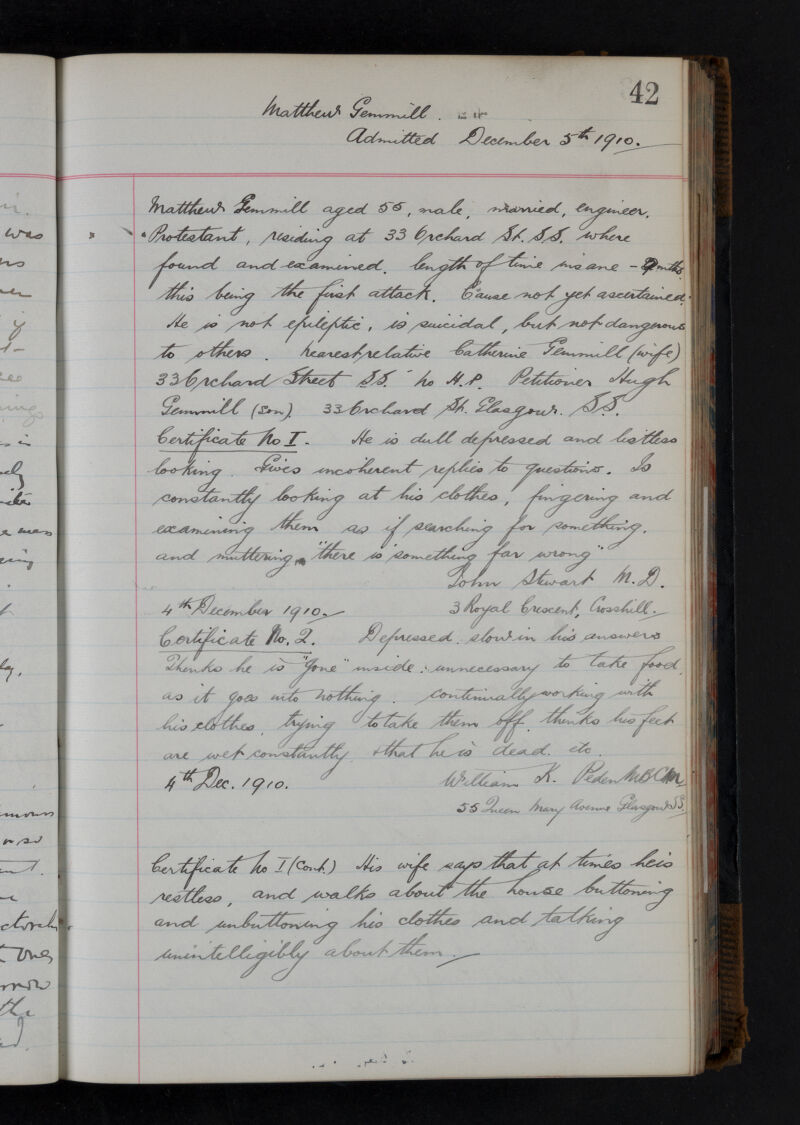 42
Matthew Gemmill.
Admitted December 5th 1910.
Matthew Gemmill aged 55, male, married, engineer.
Protestant, residing at 33 Orchard St. S.S. where
found and examined. length of time insane - mths.
this being the first attack. Cause not yet ascertained.
He is not epileptic, is suicidal, but not dangerous
to others. nearest relative Catherine Gemmill (wife)
33 Orchard Street S.S. No H.P. Petitioner Hugh
Gemmill (son). 33 Orchard St. Glasgow. S.S.
Certificate No I. He is dull depressed and listless
looking. Gives incoherent replies to questions. Is
constantly looking at his clothes, fingering and
examining them as if searching for something.
and muttering "there is something far wrong"
John Stewart M.D.
4th December 1910. 3 Royal Crescent, Crosshill.
Certificate No. 2. Depressed. slow in his answers
Thinks he is "gone" inside: unnecessary to take food
as it goes into nothing. continually working with
his clothes, trying to take them off. thinks his feet
are wet constantly & that he is dead etc.
4th Dec. 1910. William K. Peden MBCM
55 Queen Mary Avenue Glasgow S.S.
Certificate No I (Cont.) His wife says that at times he is
restless, and walks about the house buttoning
and unbuttoning his clothes and talking
unintelligibly about them.